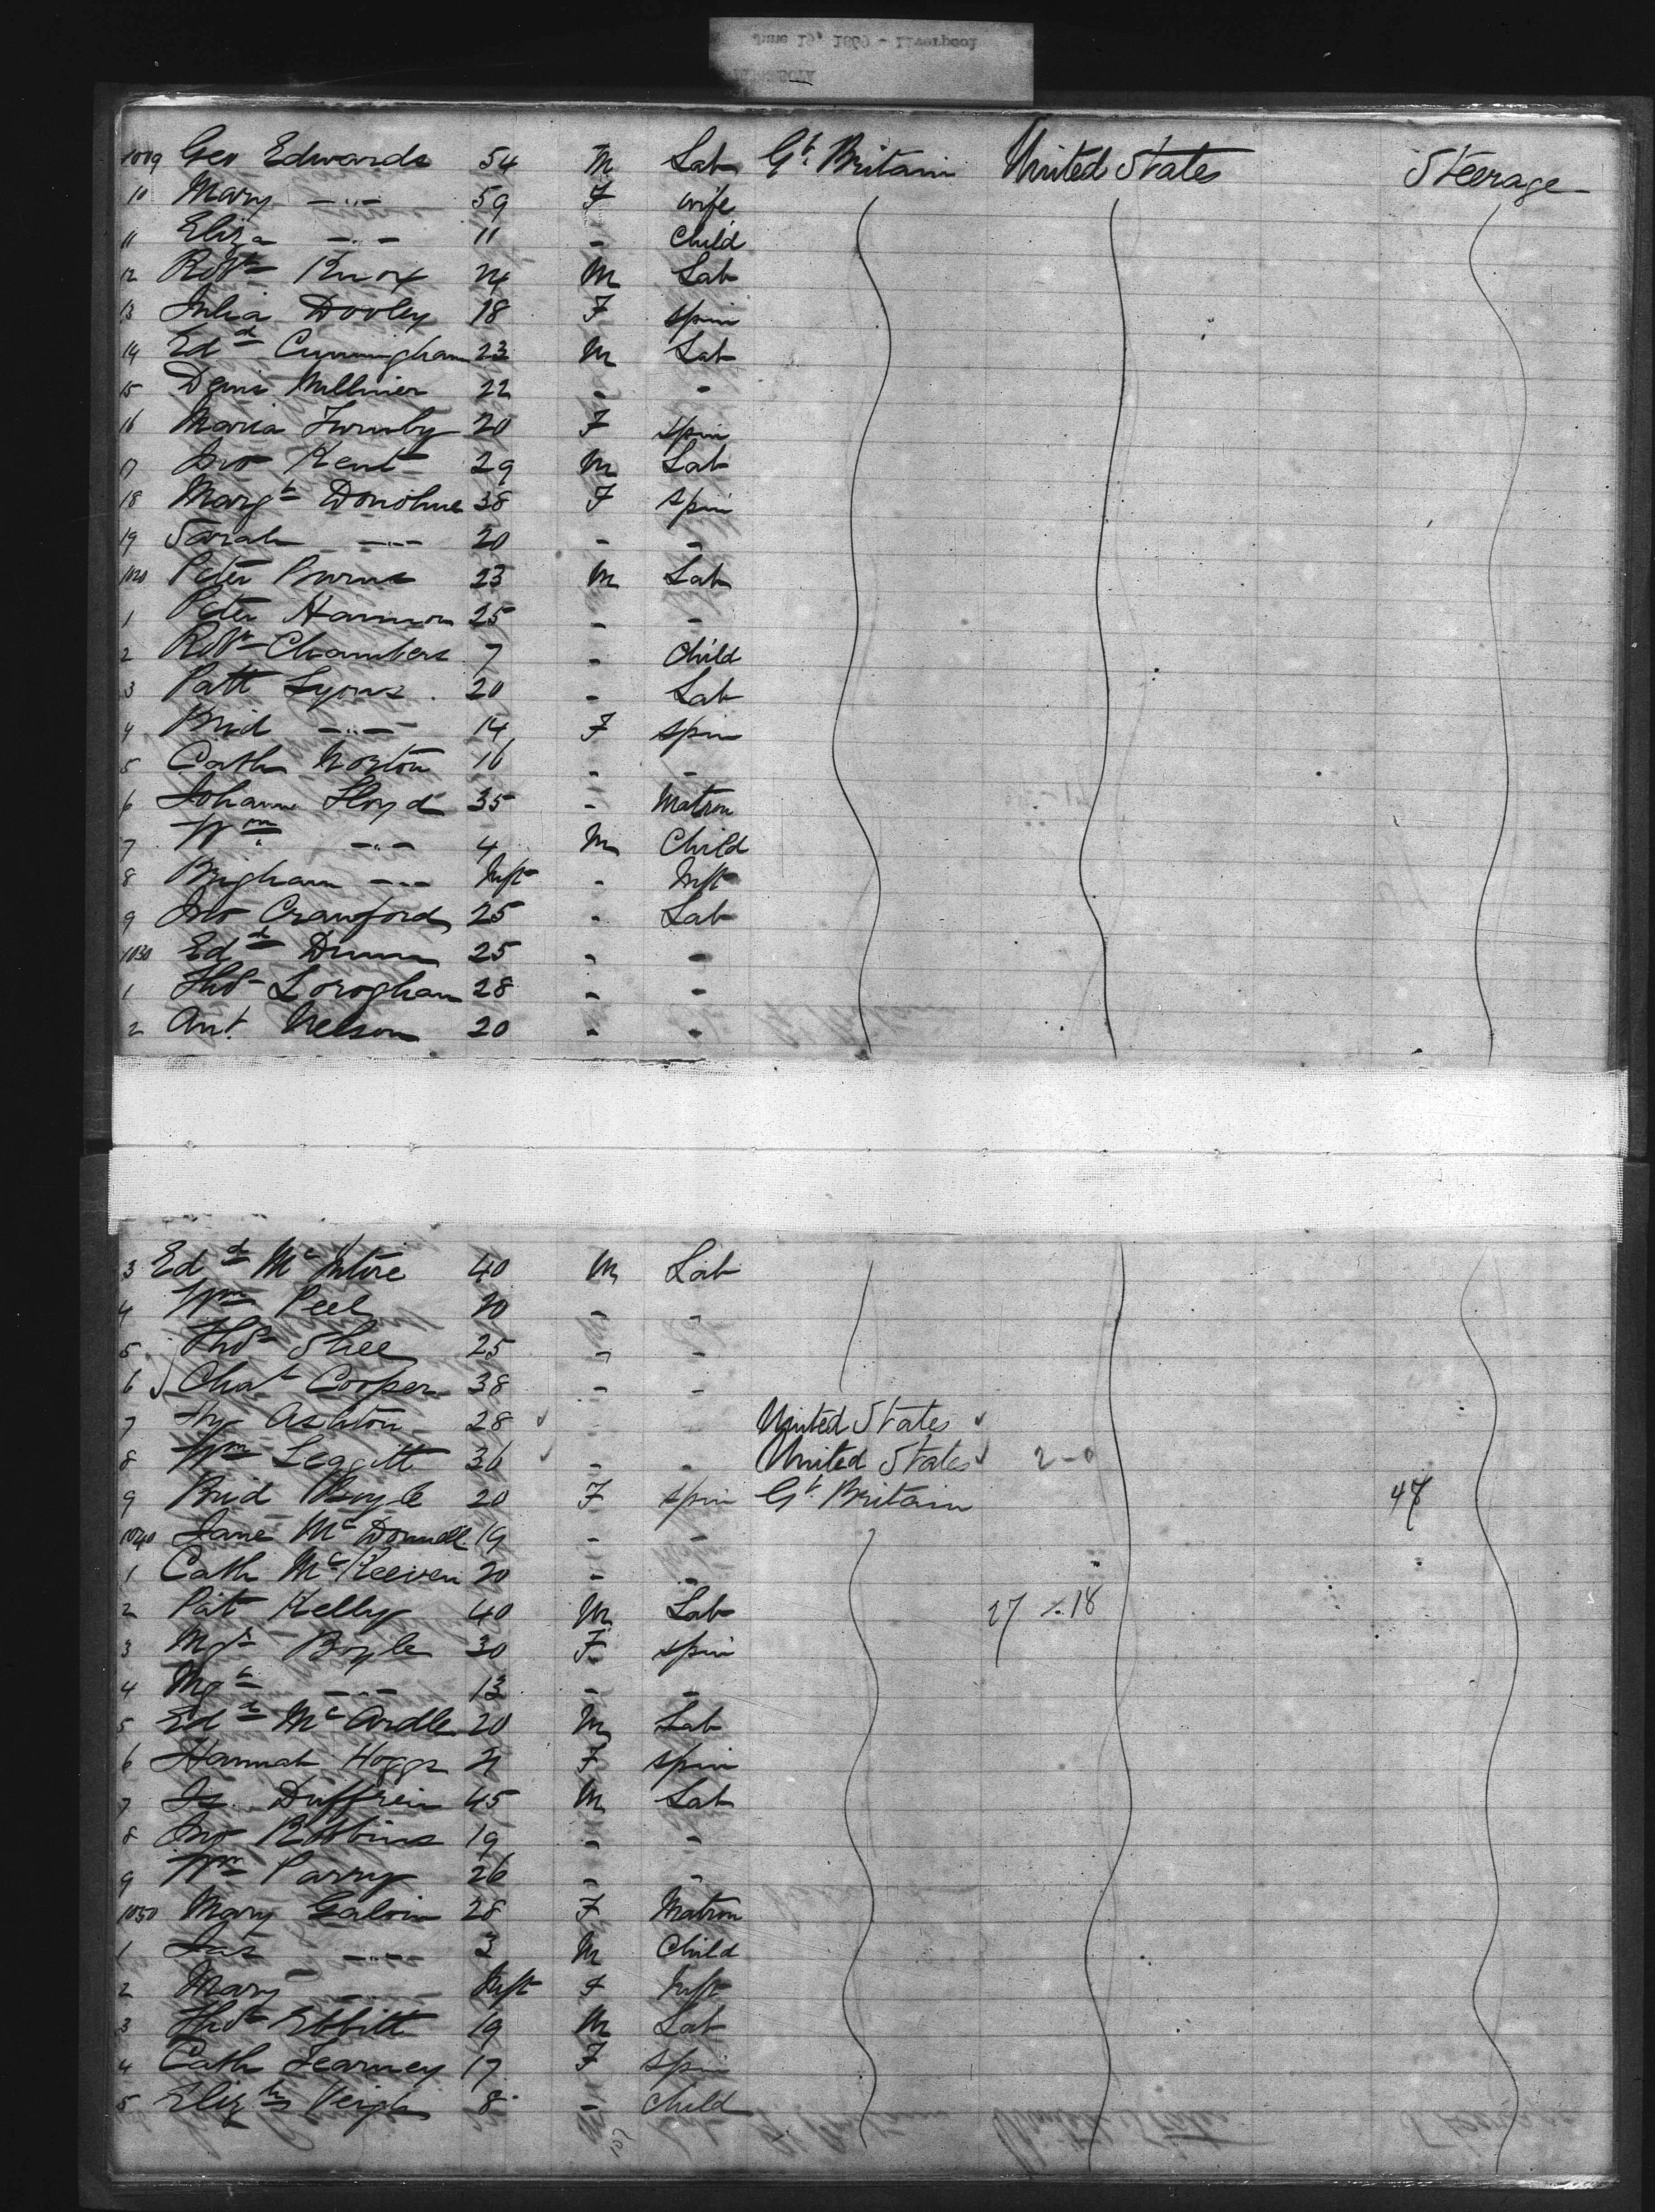 June 19, 1869 - Liverpool
1009 Geo Edwards 54 M Lab Gt. Britain United States Steerage
10 Mary -"- 59 F wife
11 Eliza -"- 11 - Child
12 Robt Knox 24 M Lab
13 Julia Dooley 18 F spin
14 Edd Cunningham 23 M Lab
15 Denis 22 - -
16 Maria 20 F spin
17 Jno Kent 29 M Lab
18 Margt Donohue 38 F spin
19 Sarah -"- 20 - -
1020 Peter Burns 23 M Lab
1 Peter Hannon 25 - -
2 Robt Chambers 7 - Child
3 Patt Lyons 20 - Lab
4 Brid -"- 14 F spin
5 Cath Norton 16 - -
6 Johanna Lloyd 35 - Matron
7 Wm -"- 4 M Child
8 Brigham -"- Inft - Inft
9 Jno Crawford 25 - Lab
1030 Edd Dunn 25 - -
1 Thos Loroghan 28 - -
2 Ant. Nelson 20 - -
3 Edd Mc Intire 40 M Lab
4 Wm Peel 20 - -
5 Thos Shee 25 - -
6 Chas Cooper 38 - -
7 Hy Ashton 28 United States
8 Wm Leggitt 36 - - United States 2-0
9 Brid Boyle 20 F spin Gt. Britain 47
1040 Jane Mc Donnell 19 - -
1 Cath Mc Keeven 20 - -
2 Pat Kelly 40 M Lab 27 18
3 Mgt Boyle 30 F spin
4 Mgt -"- 13 - -
5 Edd Mc Ardle 20 M Lab
6 Hannah Hoggs 21 F spin
7 Js. Duffrein 45 M Lab
8 Jno Robbins 19 - -
9 Wm Parry 26 - -
1050 Mary Galvin 28 F Matron
1 Jas -"- 3 M Child
2 Mary -"- Inft F Inft
3 Thos Ebbitt 19 M Lab
4 Cath Fearney 17 F Spin
5 Elizth Veigh 8 - child